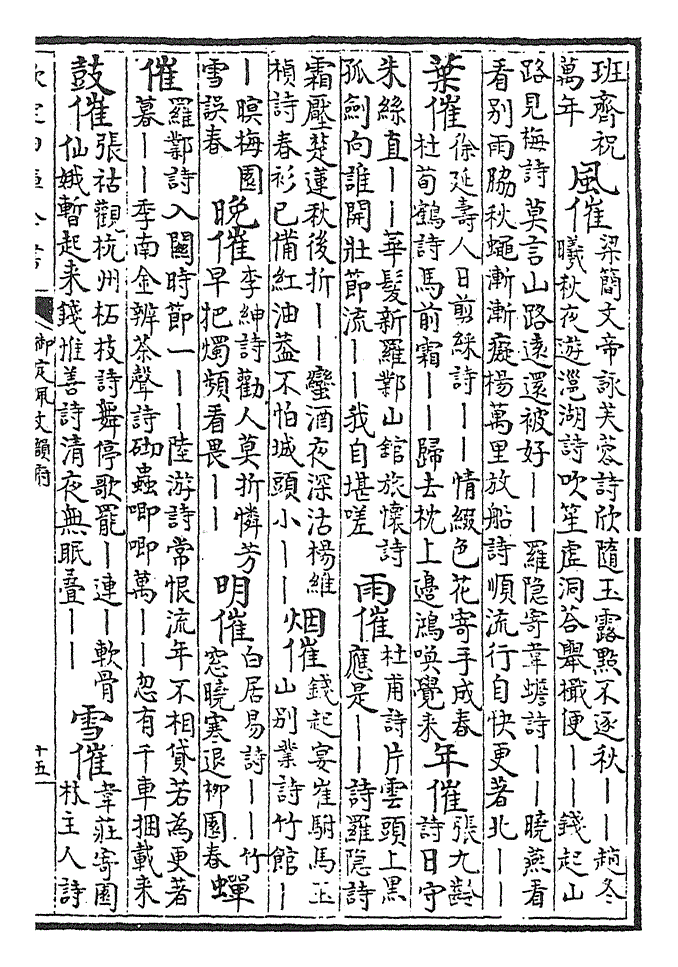 班齊祝
萬年
風催
梁簡文帝詠芙蓉詩欣隨玉露點不逐秋——趙冬
曦秋夜遊灉湖詩吹笙虛洞答舉檝便——錢起山
路見梅詩莫言山路遠還被好——羅隱寄韋蟾詩——曉燕看
看別雨脇秋蠅漸漸癡楊萬里放船詩順流行自快更著北——
葉催
徐延壽人日剪綵詩——情綴色花寄手成春
杜荀鶴詩馬前霜——歸去枕上邊鴻喚覺来
年催
張九齡
詩日守
朱絲直——華髮新羅鄴山館旅懷詩
孤劍向誰開壯節流——我自堪嗟
雨催
杜甫詩片雲頭上黑
應是——詩羅隱詩
霜壓楚蓮秋後折——蠻酒夜深沽楊維
楨詩春衫已備紅油蓋不怕城頭小——
烟催
錢起宴崔駙馬玉
山別業詩竹館—
—暝梅園
雪誤春
晚催
李紳詩勸人莫折憐芳
早把燭頻看畏——
明催
白居易詩——竹
窓曉寒退柳園春
蟬
催
羅鄴詩入關時節一——陸游詩常恨流年不相貸若為更著
暮——季南金辨茶聲詩砌蟲唧唧萬——忽有千車捆載来
鼓催
張祜觀杭州柘枝詩舞停歌罷—連—軟骨
仙娥暫起来錢惟善詩清夜無眠疊——
雪催
韋莊寄園
林主人詩
欽定四庫全書
御定佩文韻府
十五